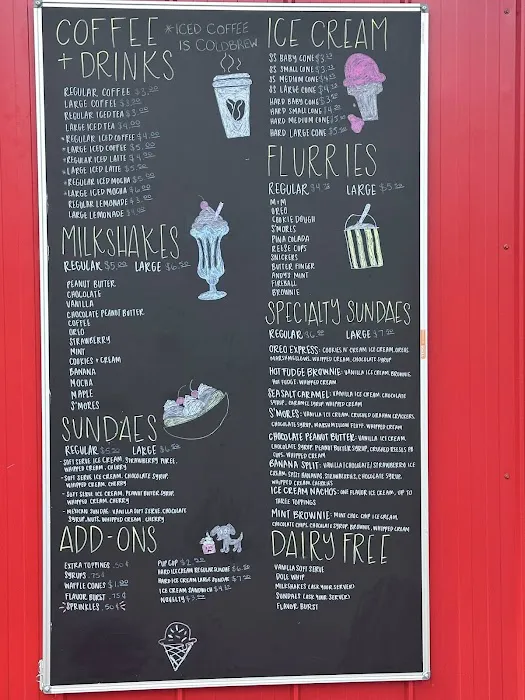 COFFEE
+ DRINKS
*ICED COFFEE
IS COLDBREW
REGULAR COFFEE $3.00
LARGE COFFEE
REGULAR ICED TEA $3.00
LARGE ICED TEA $4.00
*REGULAR ICED COFFEE $4.00
*LARGE ICED COFFEE $5.00
*REGULAR ICED LATTE
*LARGE ICED LATTE
*REGULAR ICED MOCHA $5.00
*LARGE ICED MOCHA $6.00
REGULAR LEMONADE $3.00
LARGE LEMONADE $4.00
MILKSHAKES
REGULAR LARGE
PEANUT BUTTER
CHOCOLATE
VANILLA
CHOCOLATE PEANUT BUTTER
COFFEE
OREO
STRAWBERRY
MINT
COOKIES + CREAM
BANANA
MOCHA
MAPLE
S'MORES
SUNDAES
REGULAR LARGE
- SOFT SERVE ICE CREAM, STRAWBERRY PUREE,
WHIPPED CREAM, CHERRY
- SOFT SERVE ICE CREAM, CHOCOLATE SYRUP,
WHIPPED CREAM, CHERRY
- SOFT SERVE ICE CREAM, PEANUT BUTTER SYRUP,
WHIPPED CREAM, CHERRY
- MEXICAN SUNDAE: VANILLA SOFT SERVE, CHOCOLATE
SYRUP, NUTS, WHIPPED CREAM, CHERRY
ADD-ONS
EXTRA TOPPINGS .50¢
SYRUPS .75¢
WAFFLE CONES $1.00
FLAVOR BURST .75¢
SPRINKLES .50¢
PUP CUP
HARD ICE CREAM REGULAR SUNDAE
HARD ICE CREAM LARGE SUNDAE
ICE CREAM SANDWICH
NOVELTY
ICE CREAM
SS BABY CONE
SS SMALL CONE
SS MEDIUM CONE
SS LARGE CONE
HARD BABY CONE
HARD SMALL CONE
HARD MEDIUM CONE
HARD LARGE CONE
FLURRIES
REGULAR LARGE
M+M
OREO
COOKIE DOUGH
S'MORES
PINA COLADA
REESE CUPS
SNICKERS
BUTTER FINGER
ANDYS MINT
FIREBALL
BROWNIE
SPECIALTY SUNDAES
REGULAR LARGE
OREO EXPRESS: COOKIES N' CREAM ICE CREAM, OREOS,
MARSHMALLOWS, WHIPPED CREAM, CHOCOLATE SYRUP
HOT FUDGE BROWNIE: VANILLA ICE CREAM, BROWNIE,
HOT FUDGE, WHIPPED CREAM
SEA SALT CARAMEL: VANILLA ICE CREAM, CHOCOLATE
SYRUP, CARAMEL SYRUP, WHIPPED CREAM
S'MORES: VANILLA ICE CREAM, CRUSHED GRAHAM CRACKERS,
CHOCOLATE SYRUP, MARSHMALLOW FLUFF, WHIPPED CREAM
CHOCOLATE PEANUT BUTTER: VANILLA ICE CREAM,
CHOCOLATE SYRUP, PEANUT BUTTER SYRUP, CRUSHED REESES PB
CUPS, WHIPPED CREAM
BANANA SPLIT: VANILLA/CHOCOLATE/STRAWBERRY ICE
CREAM, SPLIT BANANAS, STRAWBERRIES, CHOCOLATE SYRUP,
WHIPPED CREAM, CHERRIES
ICE CREAM NACHOS: ONE FLAVOR ICE CREAM, UP TO
THREE TOPPINGS
MINT BROWNIE: MINT CHOC CHIP ICE CREAM,
CHOCOLATE CHIPS, CHOCOLATE SYRUP, BROWNIES, WHIPPED CREAM
DAIRY FREE
VANILLA SOFT SERVE
DOLE WHIP
MILKSHAKES (ASK YOUR SERVER)
SUNDAES (ASK YOUR SERVER)
FLAVOR BURST